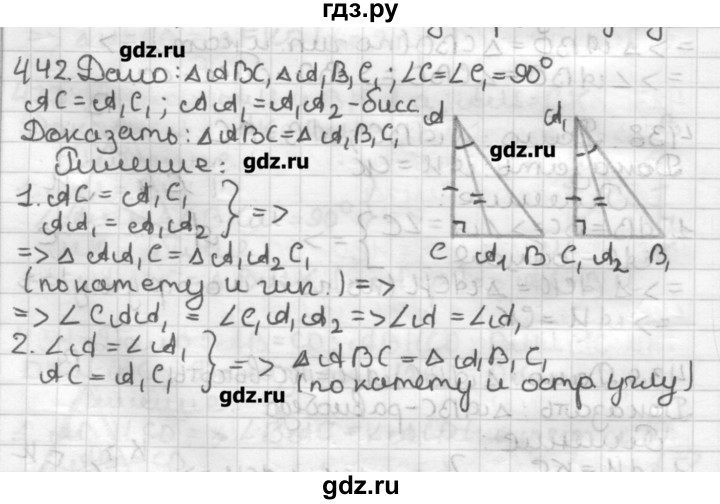 гдз.ру
gdz.ru
442. Дано: ΔABC, ΔA₁B₁C₁; ∠C=∠C₁=90°
AC=A₁C₁; AA₁=A₁A₂-бисс
Доказать: ΔABC=ΔA₁B₁C₁
Решение:
gdz.ru
1. AC=A₁C₁ } =>
AA₁=A₁A₂
=> ΔAA₁C=ΔA₁A₂C₁
(по катету и гип.) =>
=> ∠CAA₁ = ∠C₁A₁A₂ => ∠A=∠A₁
2. ∠A=∠A₁ } => ΔABC=ΔA₁B₁C₁
AC=A₁C₁ (по катету и остр углу)
gdz.ru
A A₁
gdz.ru
C A₁ B C₁ A₂ B₁
gdz.ru